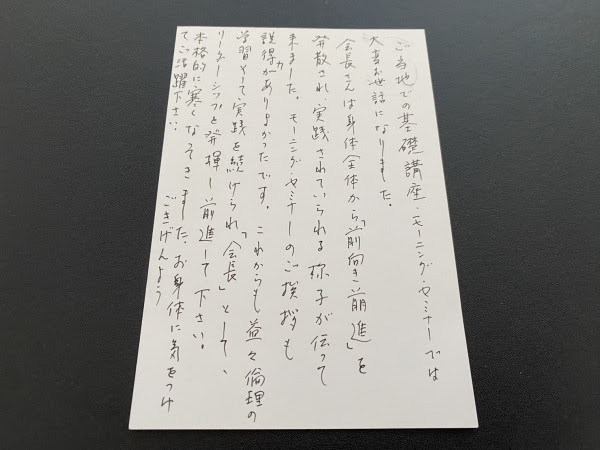 ご当地での基礎講座・モーニング・セミナーでは
大変お世話になりました。
会長さんは身体全体から「前向き、前進」を
発散され、実践されていられる様子が伝って
来ました。モーニング・セミナーのご挨拶も
説得力がありよかったです。これからも益々倫理の
学習そして、実践を続けられ、「会長」として、
リーダーシップを発揮し前進して下さい。
本格的に寒くなってきました、お身体に気をつけ
てご活躍下さい。
ごきげんよう